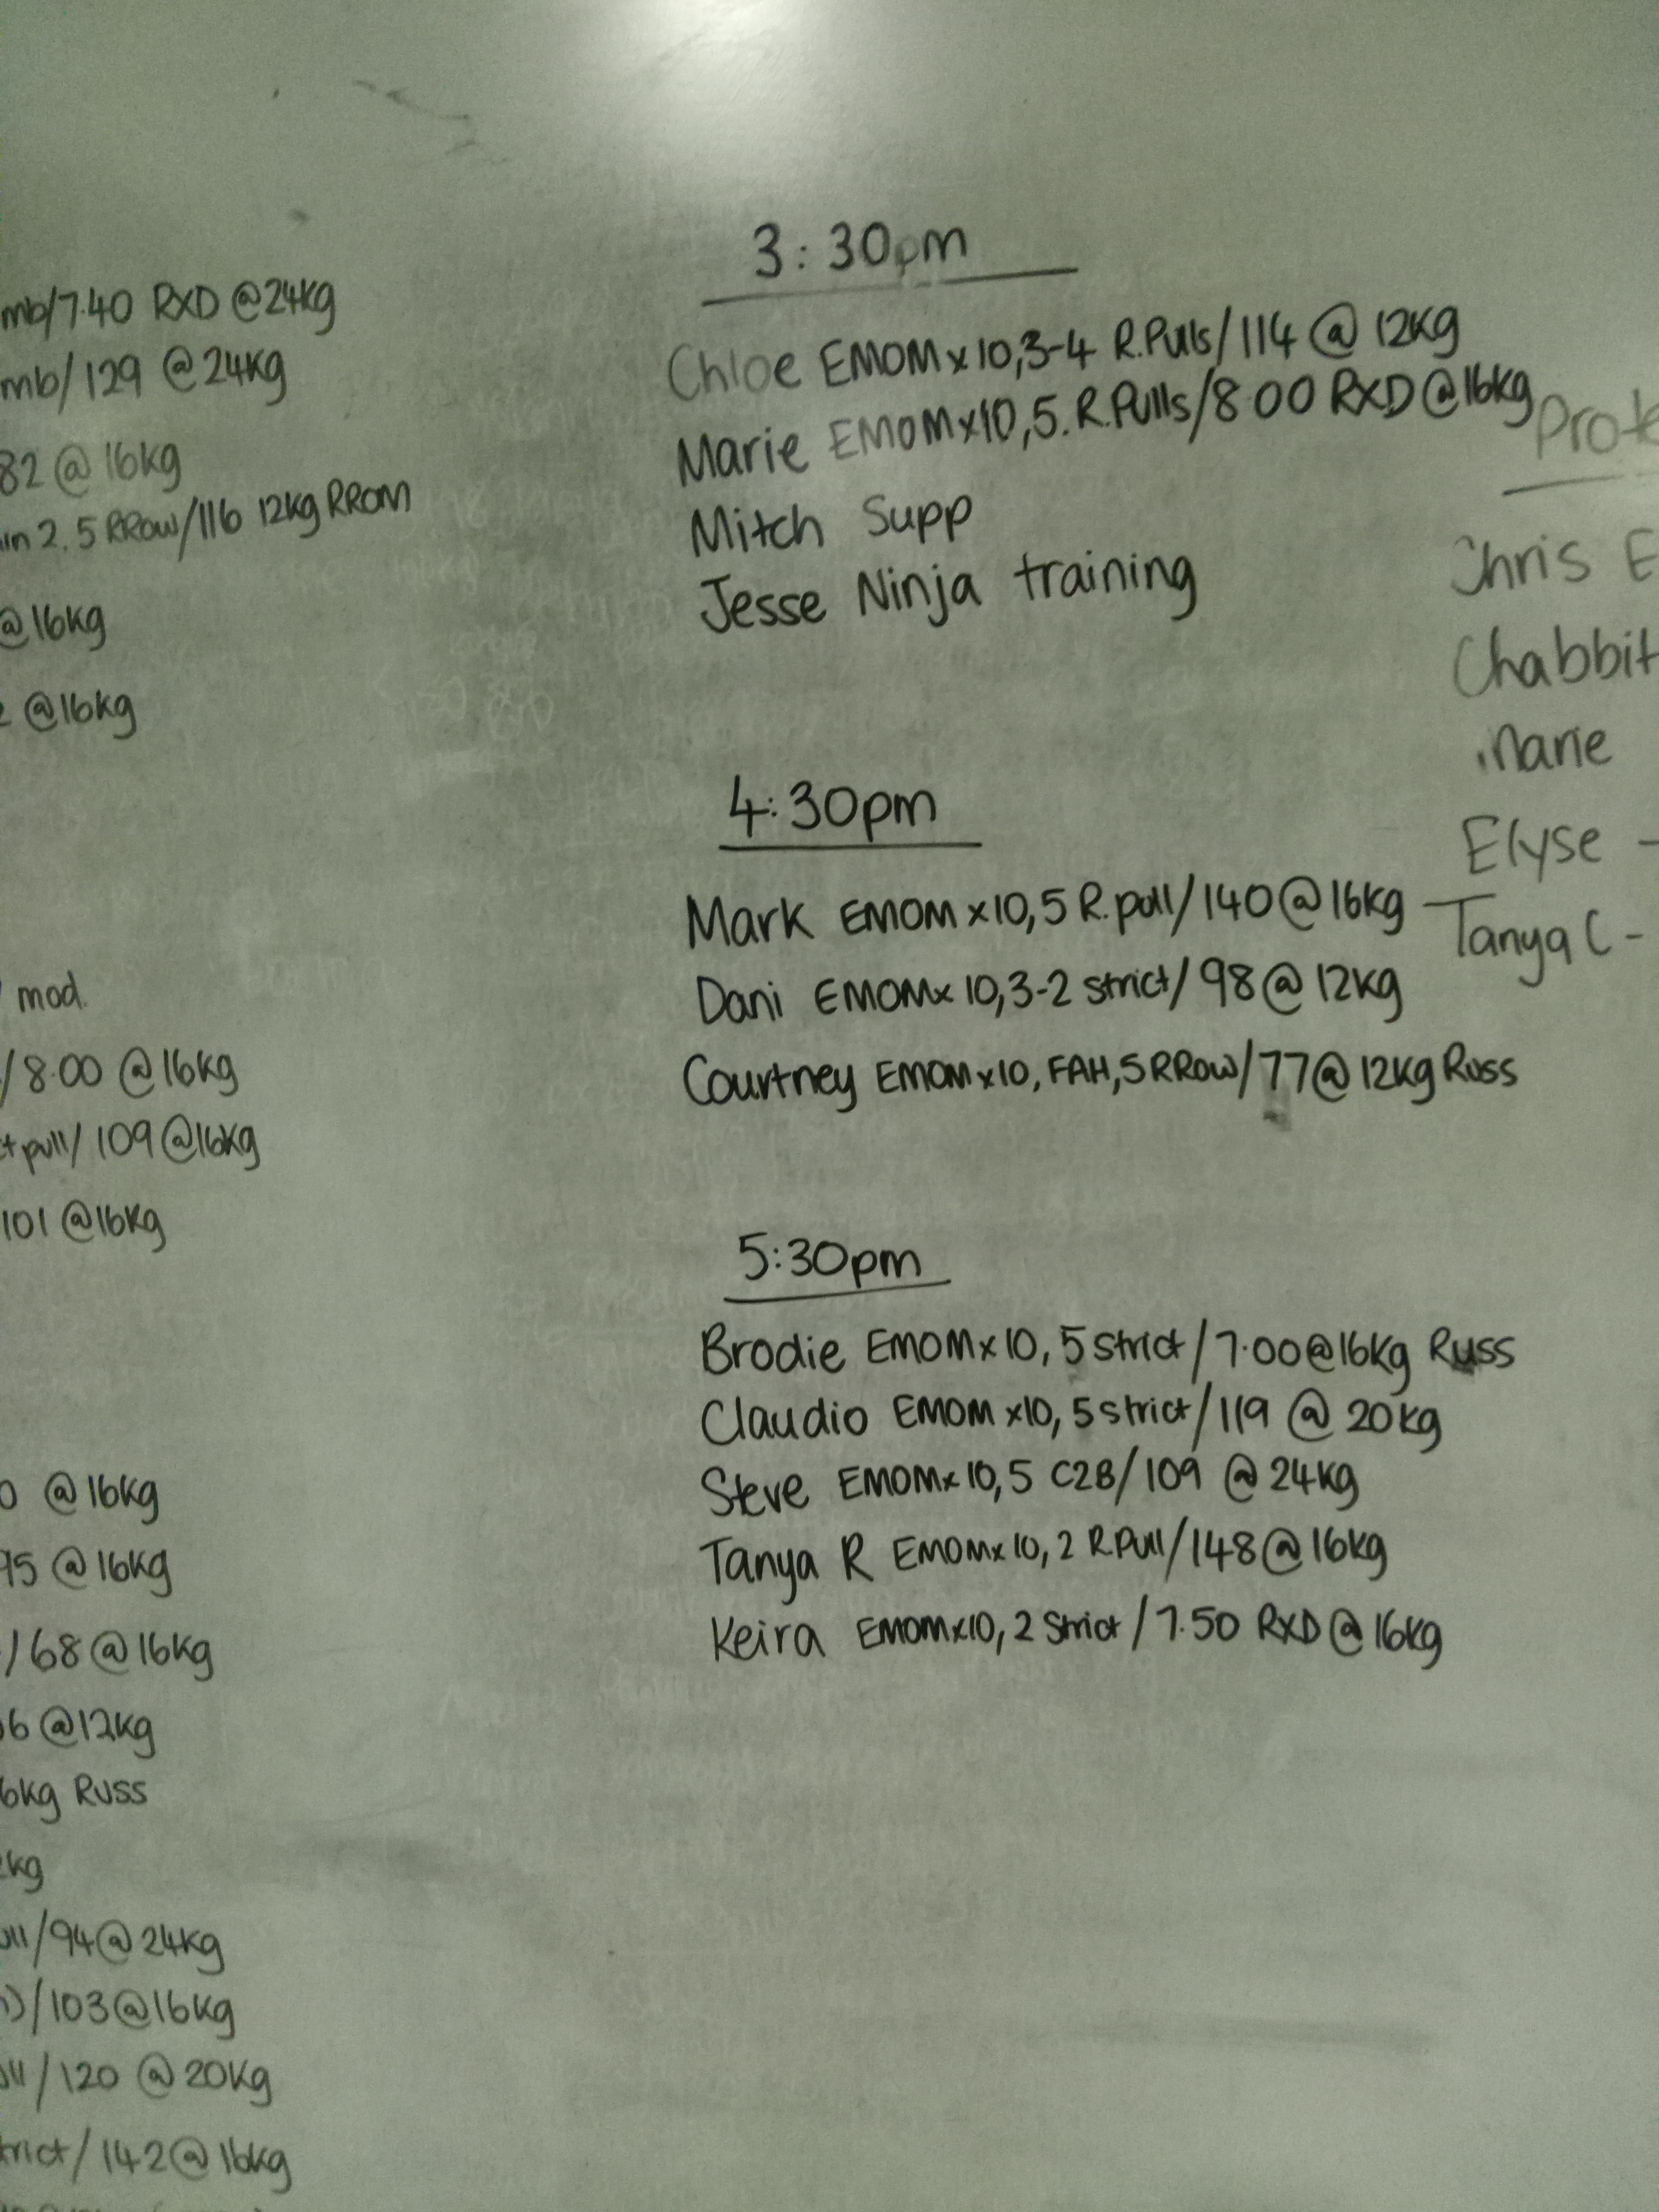 mb/7.40 RXD @24kg
mb/129 @24kg
82 @ 16kg
2.5 RRow/116 12kg RROM
@16kg
@16kg
mod.
/8.00 @16kg
pull/109 @16kg
101 @16kg
@16kg
95 @16kg
/68@16kg
6 @12kg
6kg Russ
kg
/94@24kg
)/103@16kg
/120 @20kg
trict/142@16kg
3:30pm
Chloe EMOM x 10,3-4 R.Pulls/114 @ 12kg
Marie EMOM x10,5.R.Pulls/8.00 RXD@16kg
Mitch Supp
Jesse Ninja training
4:30pm
Mark EMOM x10,5 R.pull/140@16kg
Dani EMOMx 10,3-2 strict/98@12kg
Courtney EMOM x10, FAH,5 RRow/77@12kg Russ
5:30pm
Brodie EMOMx10, 5 strict/7.00@16kg Russ
Claudio EMOM x10, 5 strict/119 @ 20kg
Steve EMOMx10,5 C2B/109 @ 24kg
Tanya R EMOMx10, 2 R.Pull/148@16kg
Keira EMOMx10, 2 Strict/7.50 RXD@16kg
Prote
Chris E
Chabbit
Marie
Elyse -
Tanya C -